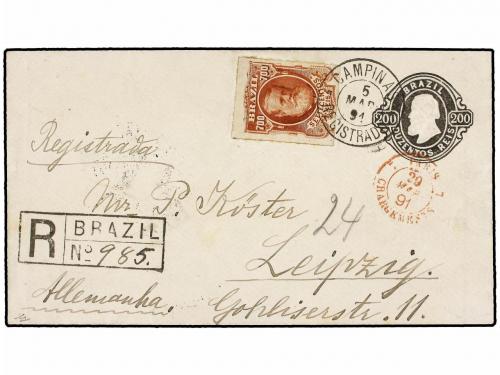 BRAZIL
700 700
CAMPINA
5
MAR
91
REGISTRADO
BRAZIL
200 200
DUZENTOS REIS
Registrada
PARIS
30
MAR
91
CHARGEMENTS
Mr. P. Köster
24
R BRAZIL
No 985.
Leipzig.
Allemanha.
Gohliserstr. 11.